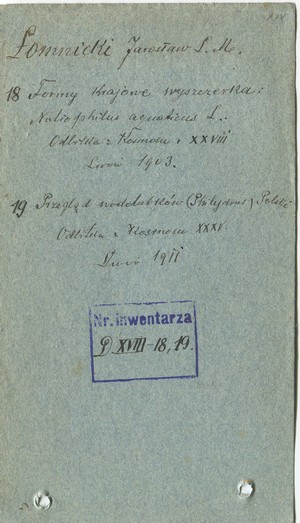 Łomnicki Jarosław L. M.
18 Formy krajowe wyszczerka:
Notiophilus aquaticus L.
Odbitka z Kosmosu XXVIII
Lwów 1903.
19 Przegląd wodolubków (Philydrus) Polski
Odbitka z Kosmosu XXXV.
Lwów 1911
Nr. inwentarza
XVIII-18, 19.